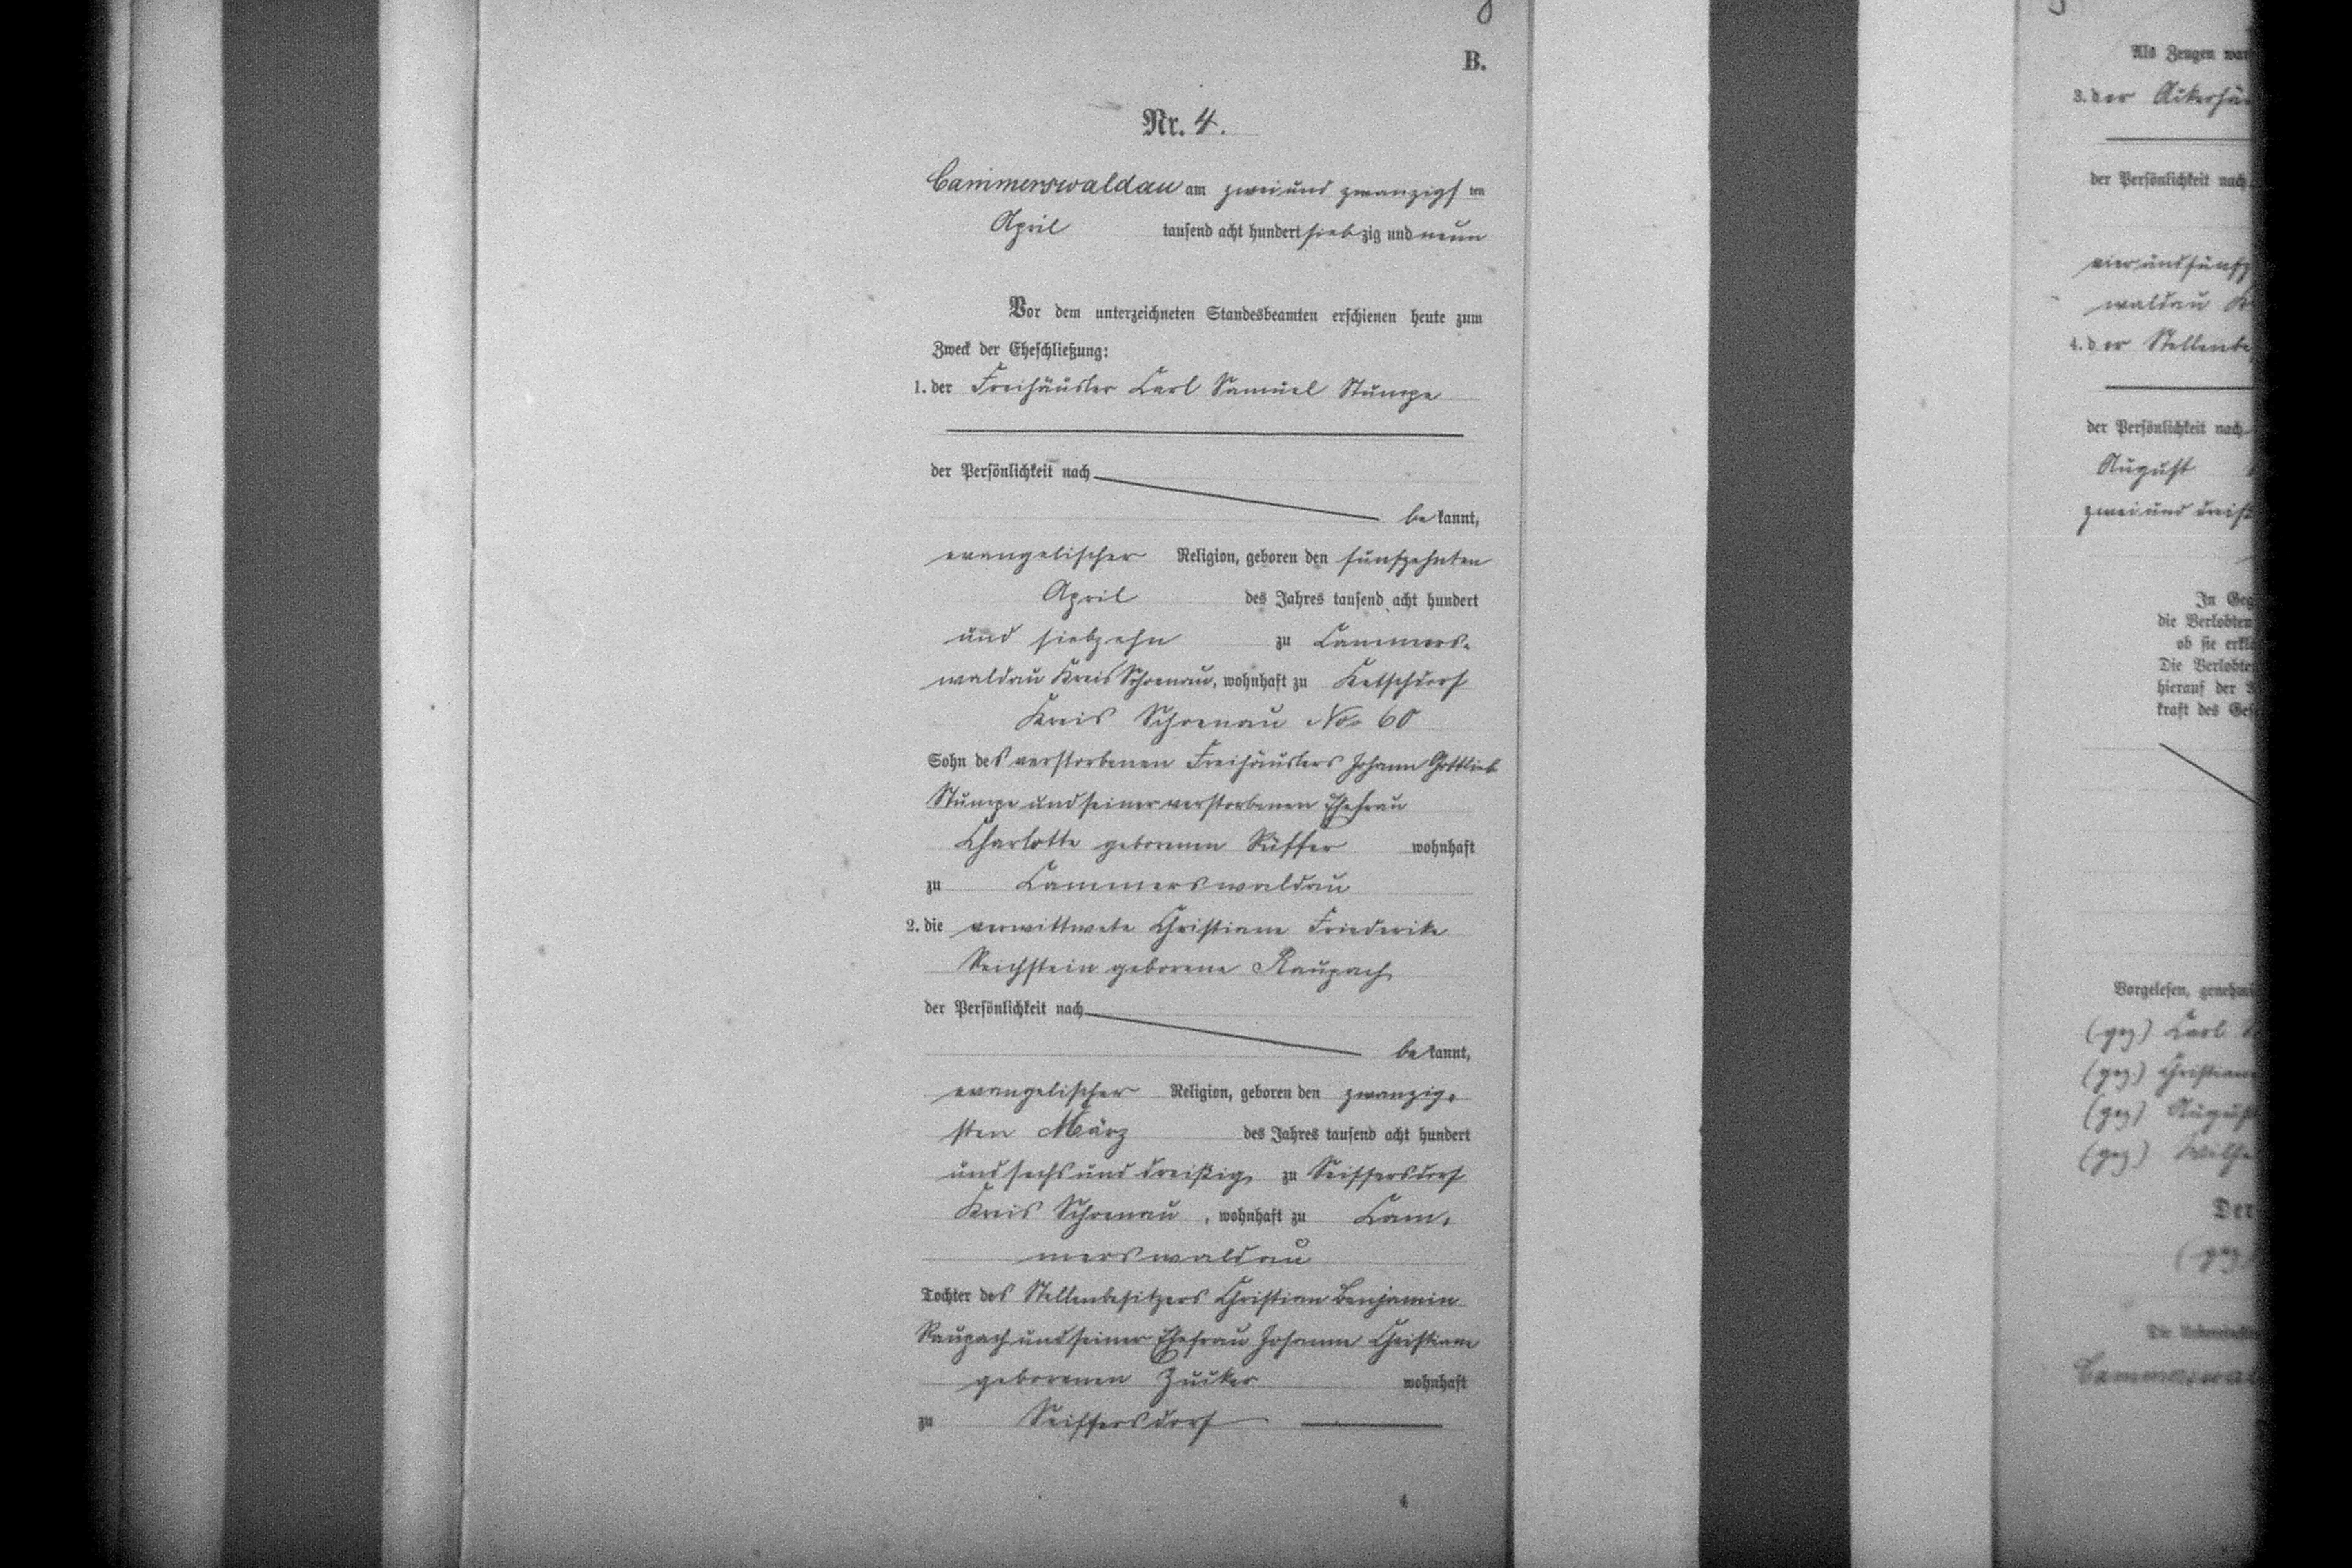 B.
Nr. 4.
Cammerswaldau am zwei und zwanzigsten
April tausend acht hundert siebzig und neun
Vor dem unterzeichneten Standesbeamten erschienen heute zum
Zweck der Eheschließung:
1. der Freihäusler Carl Samuel Stumpe
der Persönlichkeit nach
bekannt,
evangelischer Religion, geboren den fünfzehnten
April des Jahres tausend acht hundert
und siebzehn zu Cammers-
waldau Kreis Schoenau, wohnhaft zu Ketschdorf
Kreis Schoenau No 60
Sohn des verstorbenen Freihäuslers Johann Gottlieb
Stumpe und seiner verstorbenen Ehefrau
Charlotte geborenen Rüffer wohnhaft
zu Cammerswaldau
2. die verwittwete Christiane Friederike
Reichstein geborene Raupach
der Persönlichkeit nach
bekannt,
evangelischer Religion, geboren den zwanzig-
sten März des Jahres tausend acht hundert
und sechs und dreißig zu Seiffersdorf
Kreis Schoenau, wohnhaft zu Cam-
merswaldau
Tochter des Stellenbesitzers Christian Benjamin
Raupach und seiner Ehefrau Johanne Christiane
geborenen Zucker wohnhaft
zu Seiffersdorf
4
Als Zeugen
3. der
der Persönlichkeit nach
waldau
4. der
der Persönlichkeit nach
August
zwei und
In
die Verlobten
ob sie
Die
hierauf der
kraft des
Vorgelesen,
(gez) Carl
(gez)
(gez)
(gez)
Der
(gez)